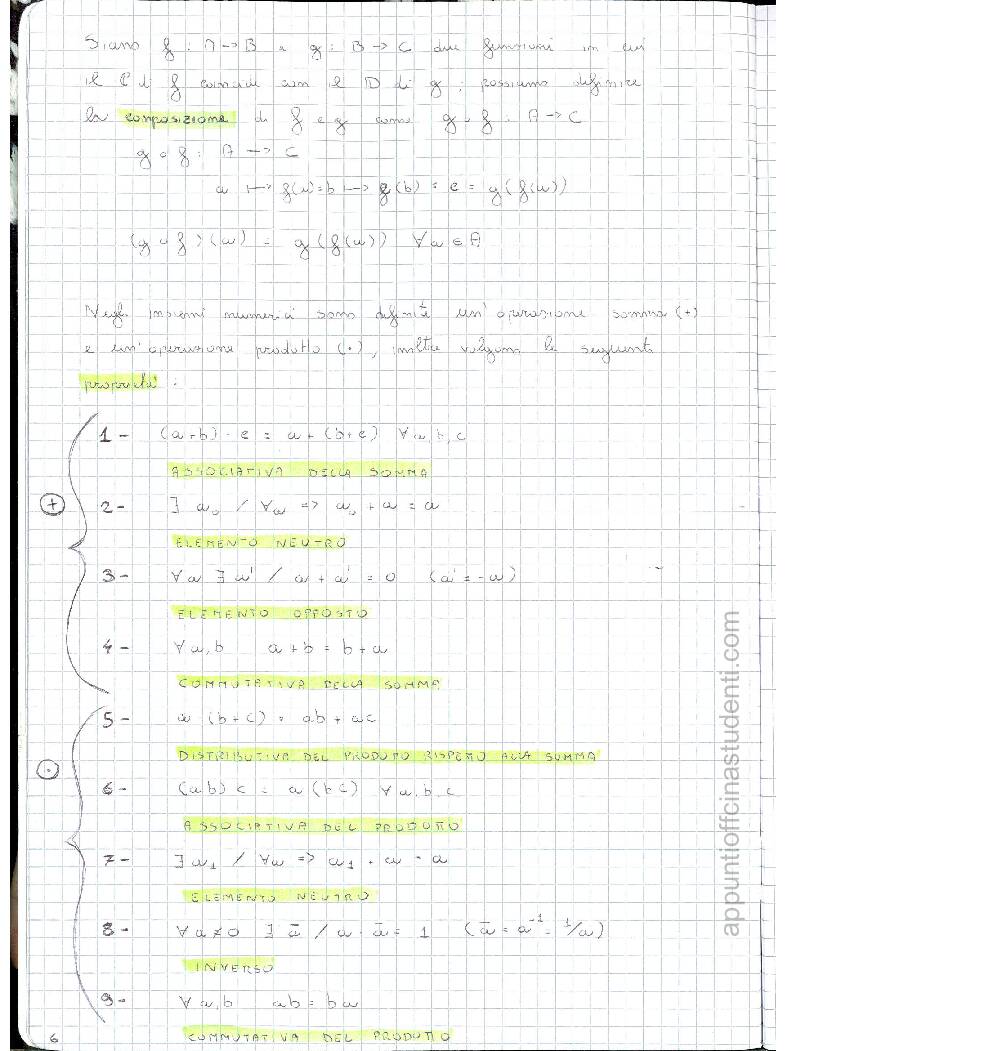 Siano f : A → B e g : B → C due funzioni in cui
il C di f coincide con il D di g ; possiamo definire
la composizione di f e g come g ∘ f : A → C
g ∘ f : A → C
a ↦ f(a) = b ↦ g(b) = c = g(f(a))
(g ∘ f)(a) = g(f(a)) ∀a ∈ A
Negli insiemi numerici sono definite un'operazione somma (+)
e un'operazione prodotto (·), inoltre valgono le seguenti
proprietà :
1 - (a+b) + c = a + (b+c) ∀a,b,c
ASSOCIATIVA DELLA SOMMA
2 - ∃ a₀ / ∀a => a₀ + a = a
ELEMENTO NEUTRO
3 - ∀a ∃ a' / a + a' = 0 (a' = -a)
ELEMENTO OPPOSTO
4 - ∀a,b a + b = b + a
COMMUTATIVA DELLA SOMMA
(+)
5 - a (b+c) = ab + ac
DISTRIBUTIVA DEL PRODOTTO RISPETTO ALLA SOMMA
6 - (ab) c = a (bc) ∀a,b,c
ASSOCIATIVA DEL PRODOTTO
7 - ∃ a₁ / ∀a => a₁ · a = a
ELEMENTO NEUTRO
8 - ∀a≠0 ∃ ā / a · ā = 1 (ā = a⁻¹ = 1/a)
INVERSO
9 - ∀a,b ab = ba
COMMUTATIVA DEL PRODOTTO
(·)
6
appuntioffcinastudenti.com